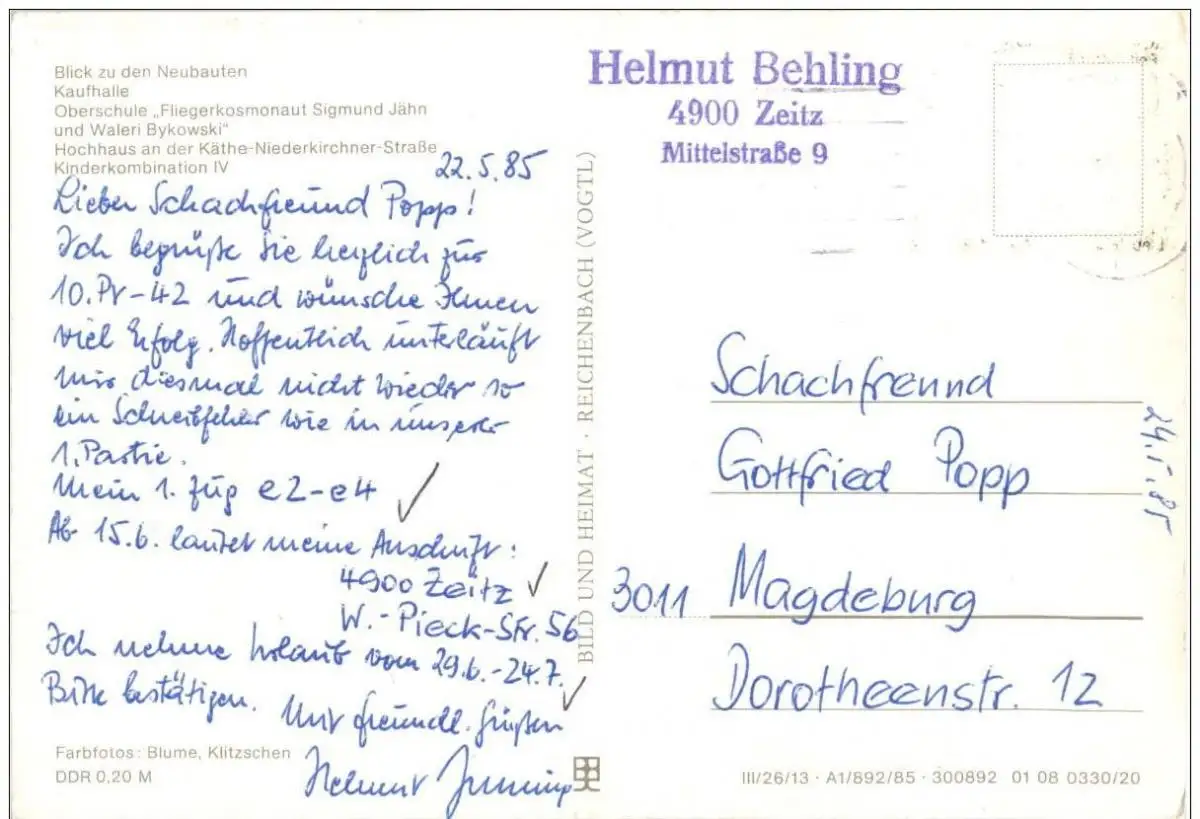 Blick zu den Neubauten
Kaufhalle
Oberschule „Fliegerkosmonaut Sigmund Jähn
und Waleri Bykowski"
Hochhaus an der Käthe-Niederkirchner-Straße
Kinderkombination IV
22.5.85
Lieber Schachfreund Popp!
Ich begrüße Sie herzlich zur
10.Pr-42 und wünsche Ihnen
viel Erfolg. Hoffentlich unterläuft
mir diesmal nicht wieder so
ein Schreibfehler wie in unserer
1. Partie.
Mein 1. Zug e2-e4
Ab 15.6. lautet meine Anschrift:
4900 Zeitz
W.-Pieck-Str. 56
Ich nehme Urlaub vom 29.6.-24.7.
Bitte bestätigen.
Mit freundl. Grüßen
Helmut
Farbfotos: Blume, Klitzschen
DDR 0,20 M
BILD UND HEIMAT · REICHENBACH (VOGTL)
Helmut Behling
4900 Zeitz
Mittelstraße 9
Schachfreund
Gottfried Popp
3011 Magdeburg
Dorotheenstr. 12
III/26/13 · A1/892/85 · 300892 01 08 0330/20